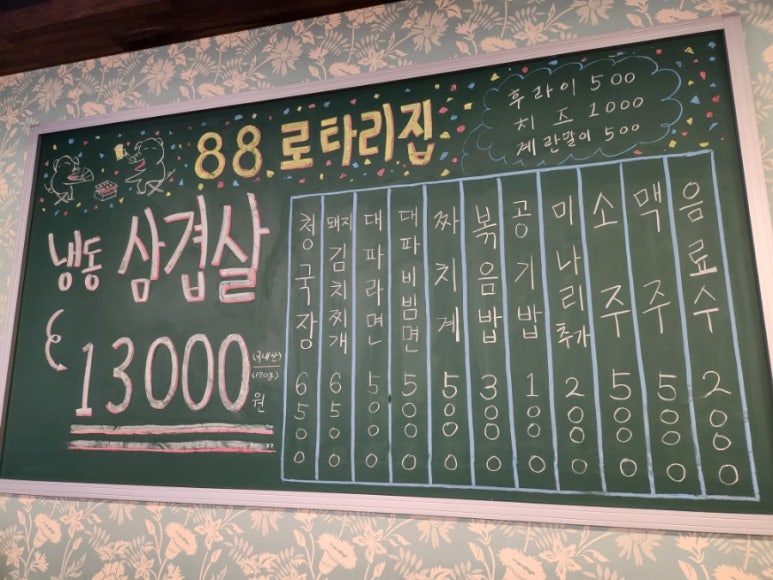 88 로타리집
후라이 500
치즈 1000
계란말이 500
냉동 삼겹살
13000원
(국내산)
(170g)
청국장 6500
돼지김치찌개 6500
대파라면 5000
대파비빔면 5000
짜치계 5000
볶음밥 3000
공기밥 1000
미나리추가 2000
소주 5000
맥주 5000
음료수 2000